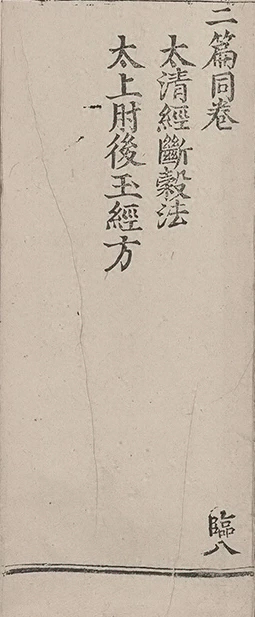 二篇同卷
太清經斷穀法
太上肘後玉經方
臨八